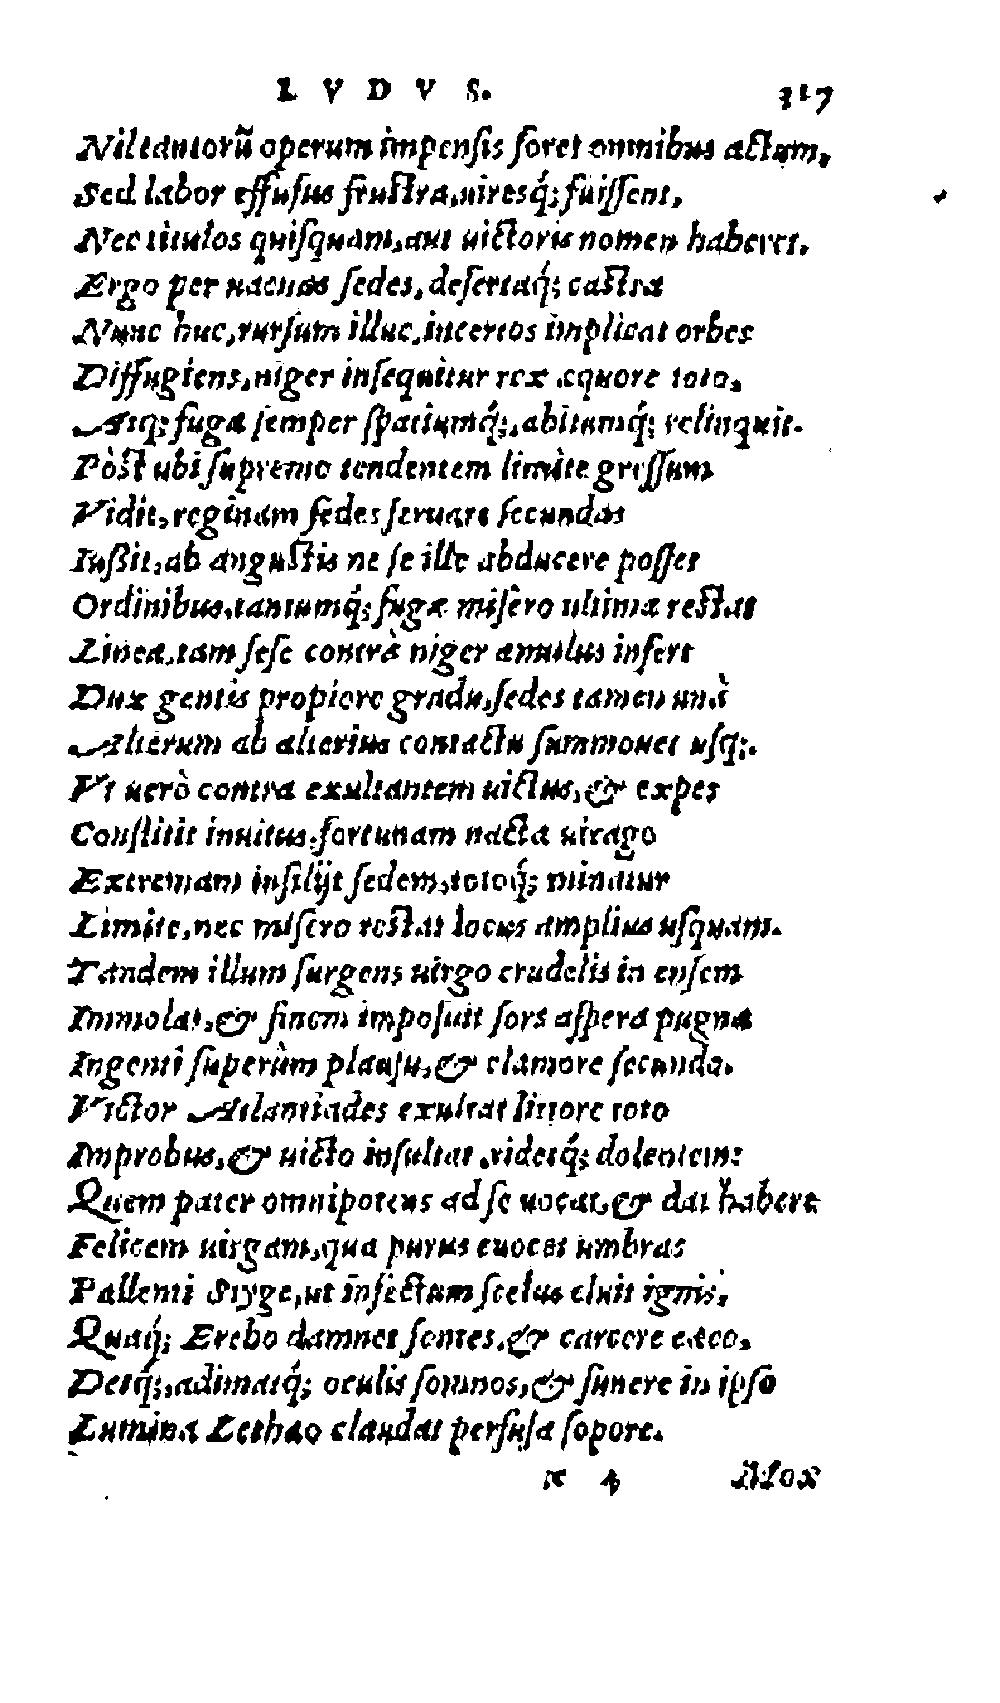 LVDVS. 317
Nil tantorũ operum impensis foret omnibus actum,
Sed labor effusus frustra, uiresq́; fuissent,
Nec titulos quisquam, aut uictoris nomen haberet.
Ergo per uacuas sedes, desertaq́; castra
Nunc huc, rursum illuc, incertos implicat orbes
Diffugiens, niger insequitur rex æquore toto,
Atq; fugæ semper spatiumq́;, abitumq́; relinquit.
Pòst ubi supremo tendentem limite gressum
Vidit, reginam sedes seruare secundas
Iußit, ab angustis ne se ille abducere posset
Ordinibus, tantumq́; fugæ misero ultima restat
Linea, tam sese contrà niger æmulus infert
Dux gentis propiore gradu, sedes tamen unà
Alterum ab alterius contactu summouet usq;.
Vt uerò contra exultantem uictus, & expes
Constitit inuitus, fortunam nacta uirago
Extremam insilijt sedem, totoq́; minatur
Limite, nec misero restat locus amplius usquam.
Tandem illum surgens uirgo crudelis in ensem
Immolat, & finem imposuit sors aspera pugnæ
Ingenti superùm plausu, & clamore secundo.
Victor Atlantiades exultat littore toto
Improbus, & uicto insultat, ridetq́; dolentem:
Quem pater omnipotens ad se uocat, & dat habere
Felicem uirgam, qua purus euocet umbras
Pallenti Styge, ut infectum scelus eluit ignis,
Quaq́; Erebo damnet sontes, & carcere cæco,
Detq́;, adimatq́; oculis somnos, & funere in ipso
Lumina Lethæo claudat perfusa sopore.
x 4 Mox